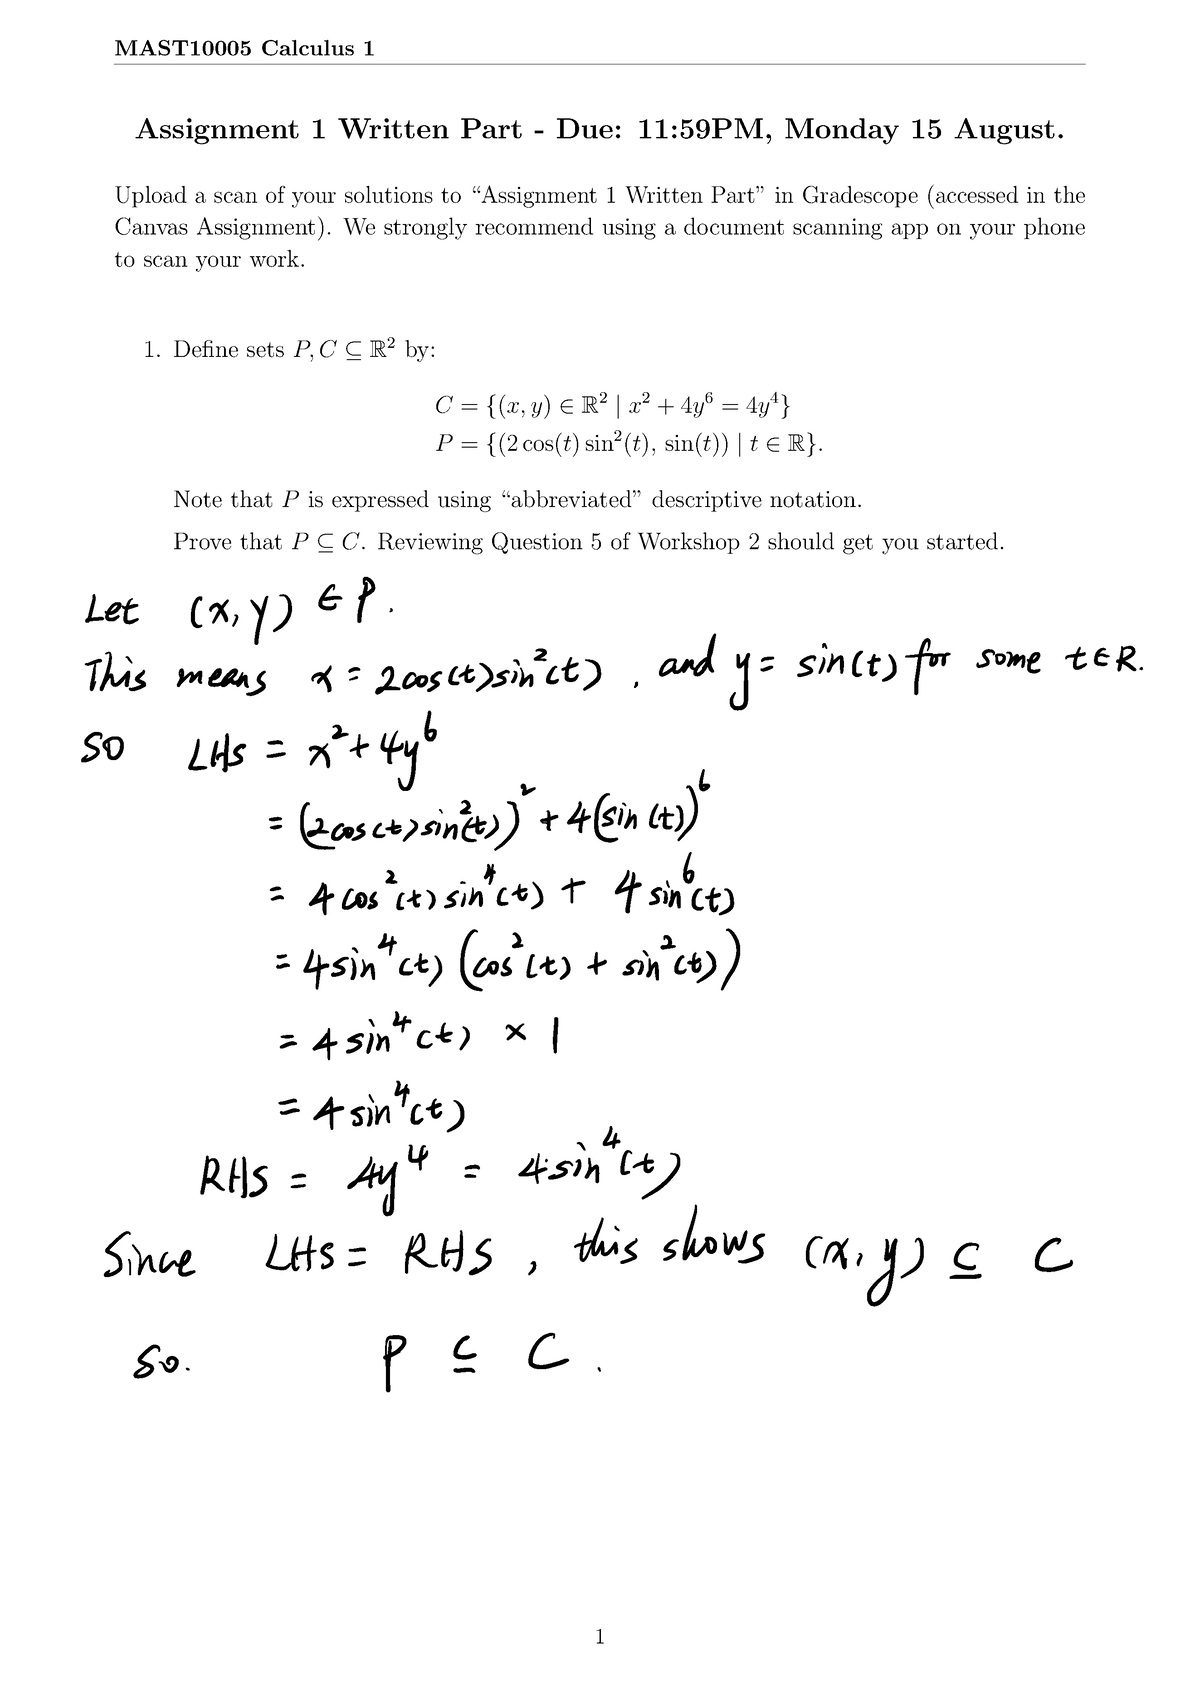 MAST10005 Calculus 1
Assignment 1 Written Part - Due: 11:59PM, Monday 15 August.
Upload a scan of your solutions to “Assignment 1 Written Part” in Gradescope (accessed in the
Canvas Assignment). We strongly recommend using a document scanning app on your phone
to scan your work.
1. Define sets P, C ⊆ ℝ² by:
C = {(x, y) ∈ ℝ² | x² + 4y⁶ = 4y⁴}
P = {(2 cos(t) sin²(t), sin(t)) | t ∈ ℝ}.
Note that P is expressed using “abbreviated” descriptive notation.
Prove that P ⊆ C. Reviewing Question 5 of Workshop 2 should get you started.
Let (x, y) ∈ P.
This means x = 2cos(t)sin²(t), and y = sin(t) for some t∈R.
so LHS = x² + 4y⁶
= (2cos(t)sin²(t))² + 4(sin(t))⁶
= 4cos²(t)sin⁴(t) + 4sin⁶(t)
= 4sin⁴(t) (cos²(t) + sin²(t))
= 4sin⁴(t) × 1
= 4sin⁴(t)
RHS = 4y⁴ = 4sin⁴(t)
Since LHS = RHS, this shows (x, y) ⊆ C
So. P ⊆ C.
1